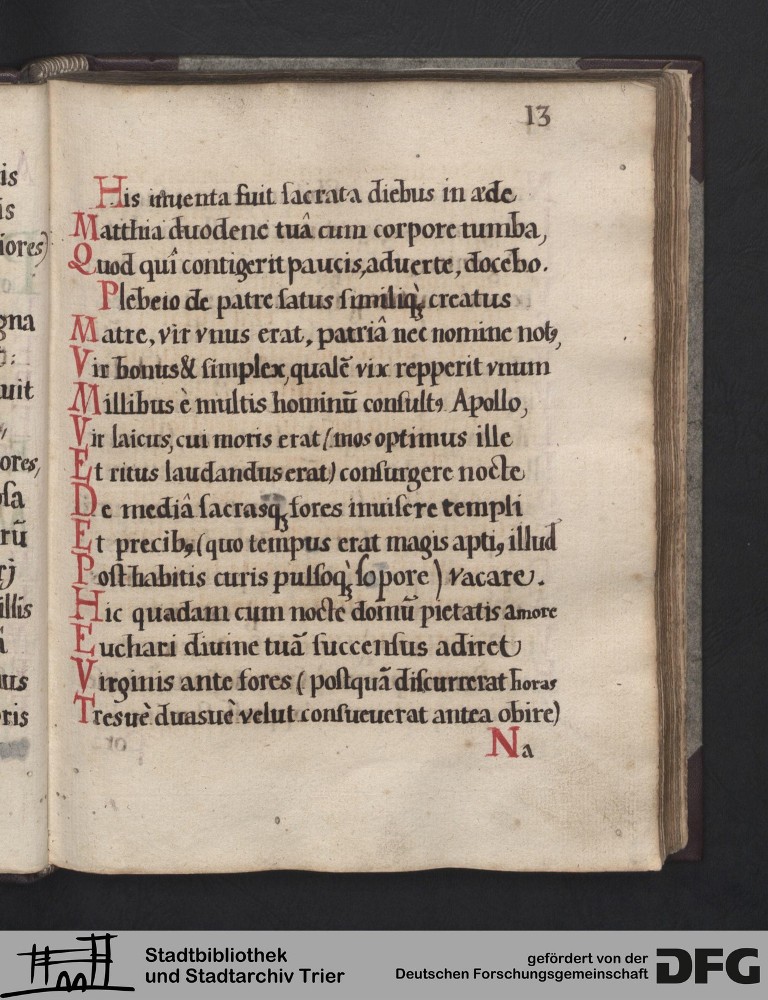 is
is
iores)
gna
uit
ores,
osa
rũ
rj
illis
uus
oris
13
His inuenta fuit sacrata diebus in æde
Matthia duodene tuâ cum corpore tumba,
Quod quî contigerit paucis, aduerte, docebo.
Plebeio de patre satus similiq; creatus
Matre, vir vnus erat, patriâ nec nomine notꝰ,
Vir bonus & simplex, qualẽ vix repperit vnum
Millibus è multis hominũ consultꝰ Apollo,
Vir laicus, cui moris erat (mos optimus ille
Et ritus laudandus erat) consurgere nocte
De mediâ sacrasq; fores inuisere templi
Et precibꝰ, (quo tempus erat magis aptũ, illud
Posthabitis curis pulsoq; sopore) vacare.
Hic quadam cum nocte domũ pietatis amore
Euchari diuine tuã succensus adiret
Virginis ante fores (postquã discurrerat horas
Tresuè duasuè velut consueuerat antea obire)
Na
Stadtbibliothek
und Stadtarchiv Trier
gefördert von der
Deutschen Forschungsgemeinschaft
DFG